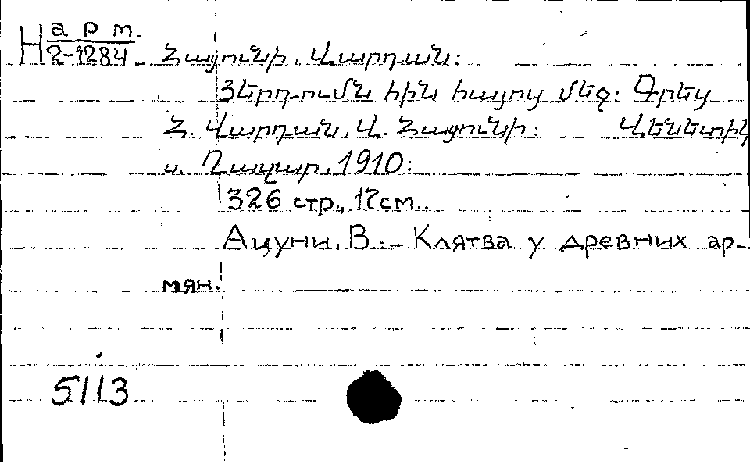 Н арт.
2-1284
Հացունի, Վարդան:
Երդումն հին հայոց մեջ: Գրեց
Հ. Վարդան Վ. Հացունի: Վենետիկ
ս. Ղազար, 1910:
326 стр., 17см.
Ацуни, В. – Клятва у древних ар-
мян.
5113